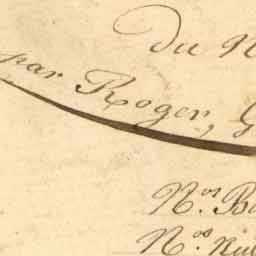 Du N
par Roger, G
N.os Ba
N.os Rul